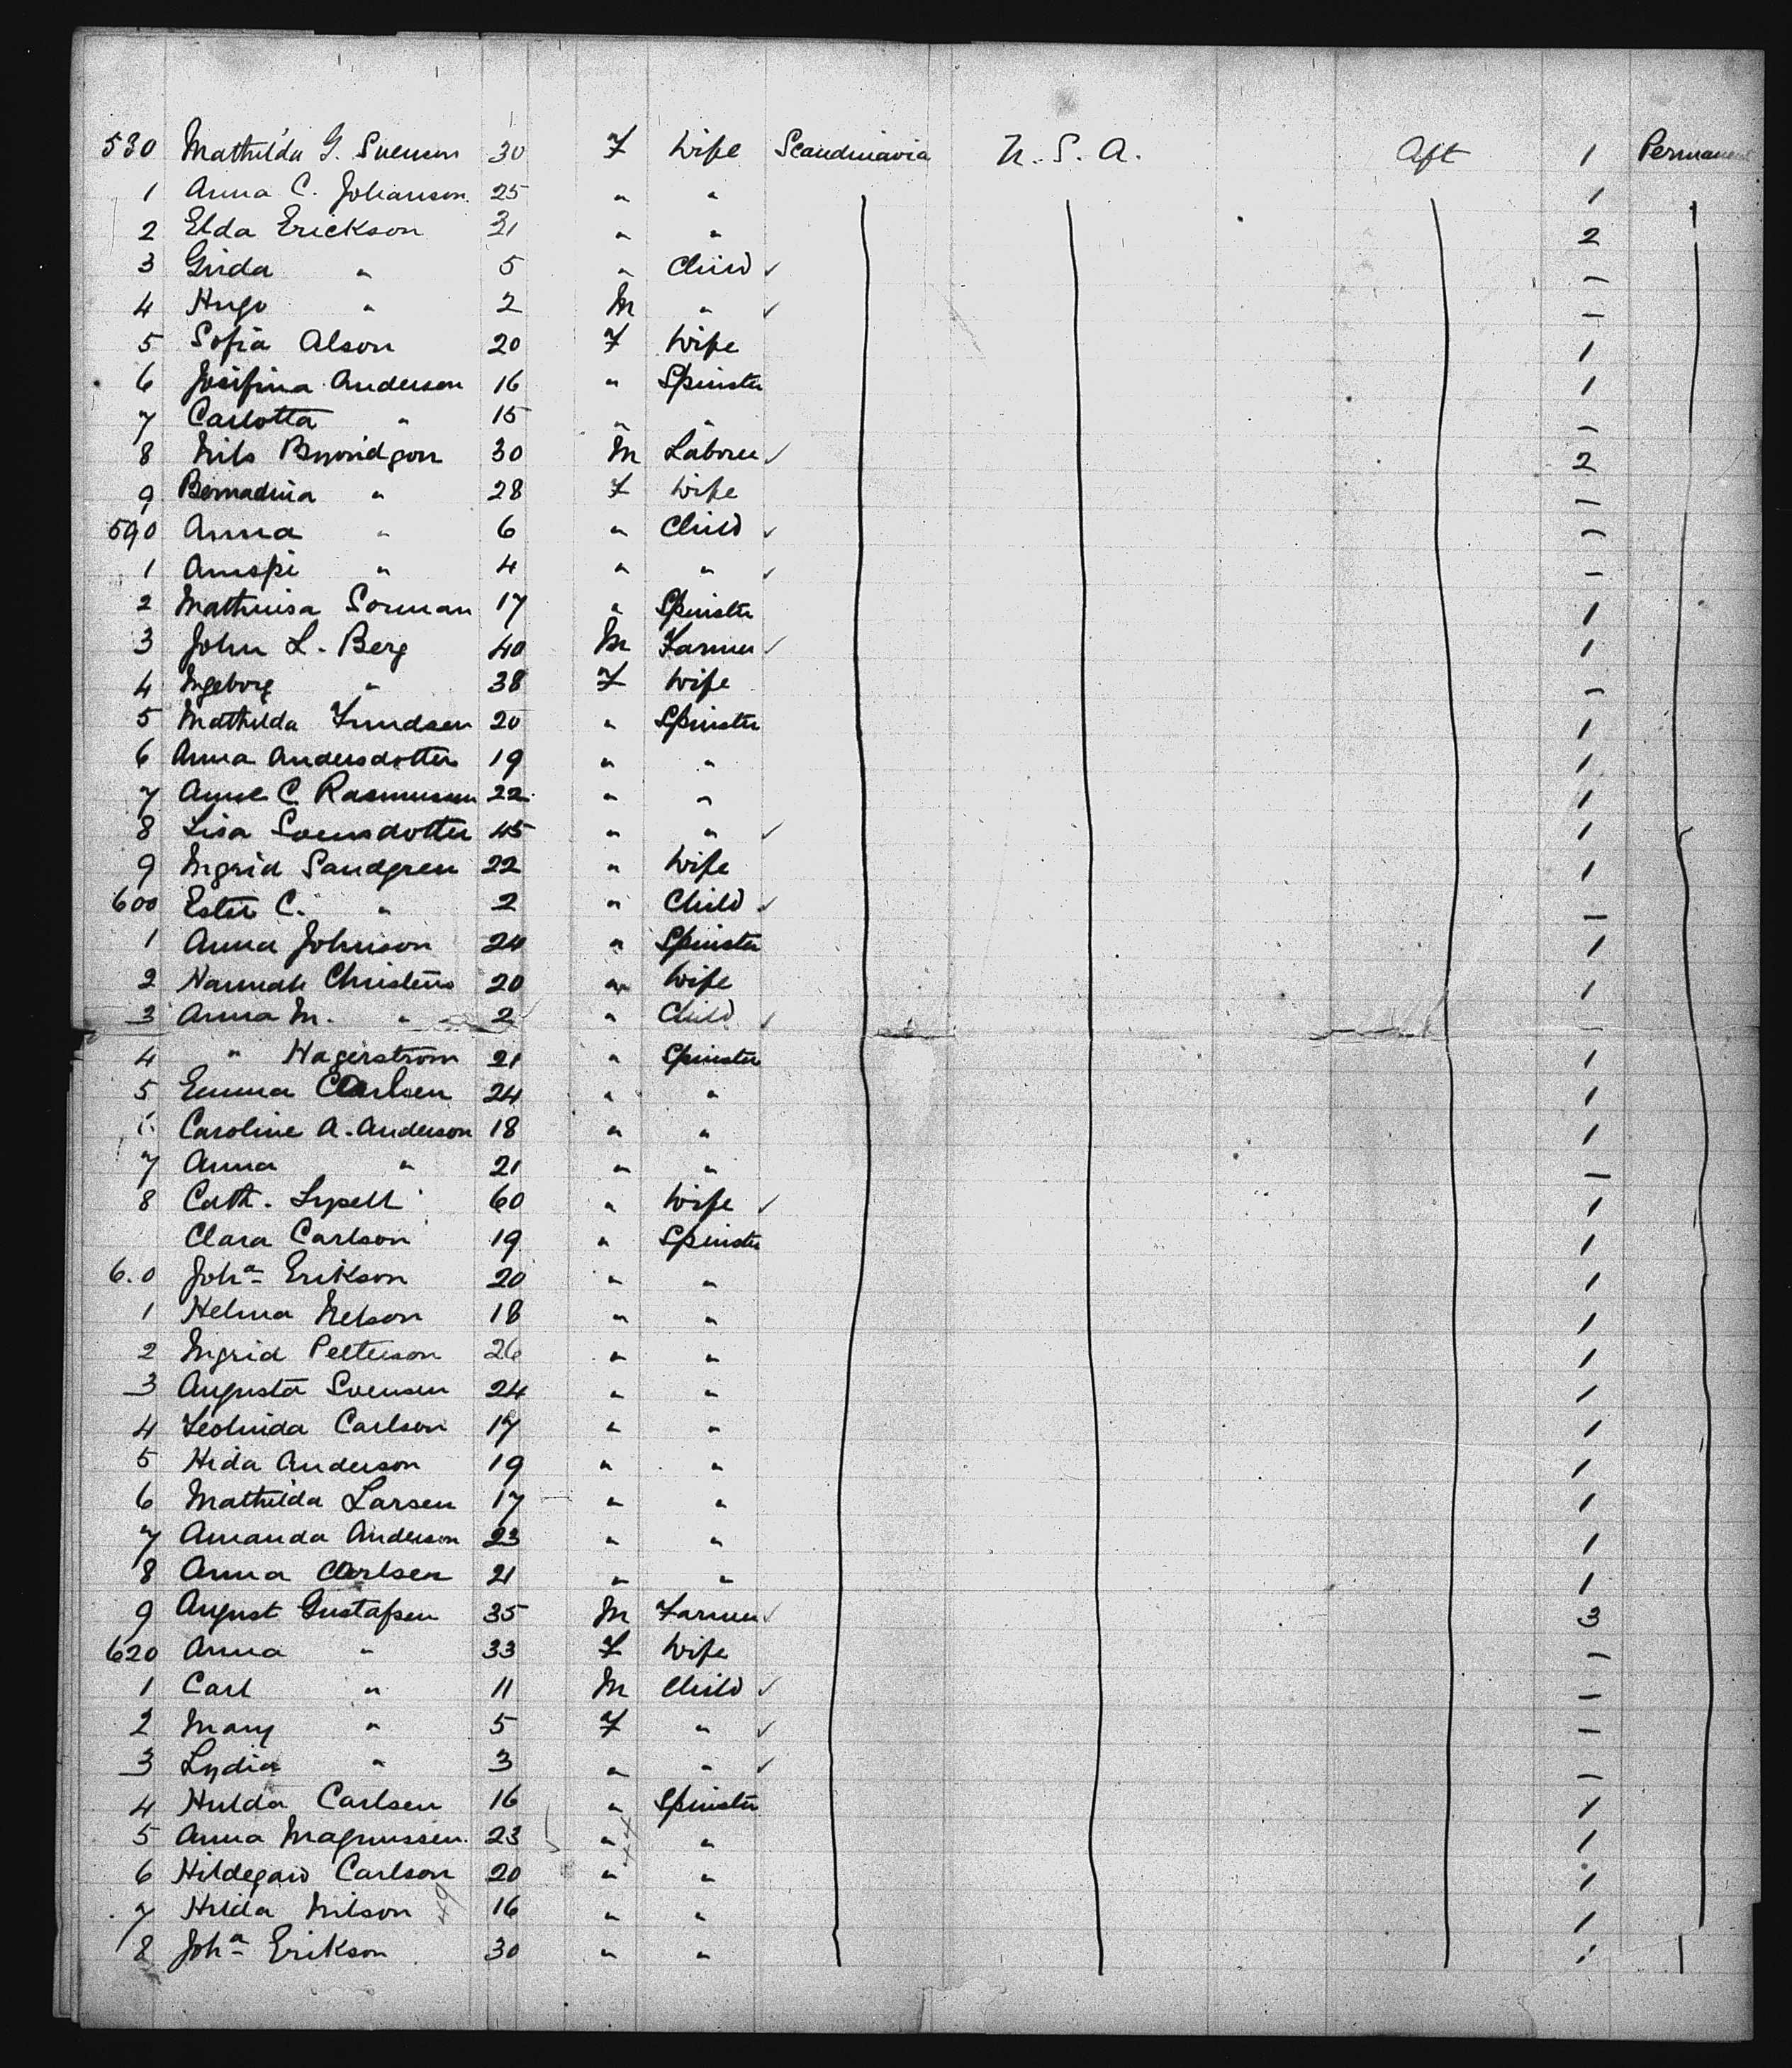 530 Mathilda G. Svensen 30 F Wife Scandinavia U.S.A. Aft 1 Permanent
1 Anna C. Johanson 25 " " 1
2 Elda Erickson 31 " " 2
3 Gerda " 5 " Child ✓ –
4 Hugo " 2 M " ✓ –
5 Sofia Alson 20 F Wife 1
6 Josifina Anderson 16 " Spinster 1
7 Carlotta " 15 " " –
8 Nils 30 M Laborer ✓ 2
9 Bernadina " 28 F Wife –
590 Anna " 6 " Child ✓ –
1 " 4 " " ✓ –
2 Sorman 17 " Spinster 1
3 John L. Berg 40 M Farmer ✓ 1
4 Ingeborg " 38 F Wife –
5 Mathilda 20 " Spinster 1
6 Anna Andersdotter 19 " " 1
7 Anne C Rasmussen 22 " " 1
8 Lisa Svensdotter 45 " " ✓ 1
9 Ingrid Sandgren 22 " Wife 1
600 Ester C. " 2 " Child ✓ –
1 Anna Johnson 24 " Spinster 1
2 Hannah Christens 20 " Wife 1
3 Anna M. " 2 " Child ✓ –
4 " Hagerstrom 21 " Spinster 1
5 Emma Carlsen 24 " " 1
6 Caroline A. Anderson 18 " " 1
7 Anna " 21 " " –
8 Cath. 60 " Wife ✓ 1
Clara Carlson 19 " Spinster 1
6.0 Joha Erikson 20 " " 1
1 Helma Nelson 18 " " 1
2 Ingrid Petterson 26 " " 1
3 Augusta Svensen 24 " " 1
4 Carlson 17 " " 1
5 Hida Anderson 19 " " 1
6 Mathilda Larsen 17 " " 1
7 Amanda Anderson 23 " " 1
8 Anna Carlsen 21 " " 1
9 August Gustafsen 35 M Farmer ✓ 3
620 Anna " 33 F Wife –
1 Carl " 11 M Child ✓ –
2 Mary " 5 F " ✓ –
3 Lydia " 3 " " ✓ –
4 Hulda Carlsen 16 " Spinster 1
5 Anna Magnussen 23 " " 1
6 Hildegard Carlson 20 " " 1
7 Hilda Nilson 16 " " 1
8 Joha Erikson 30 " " 1